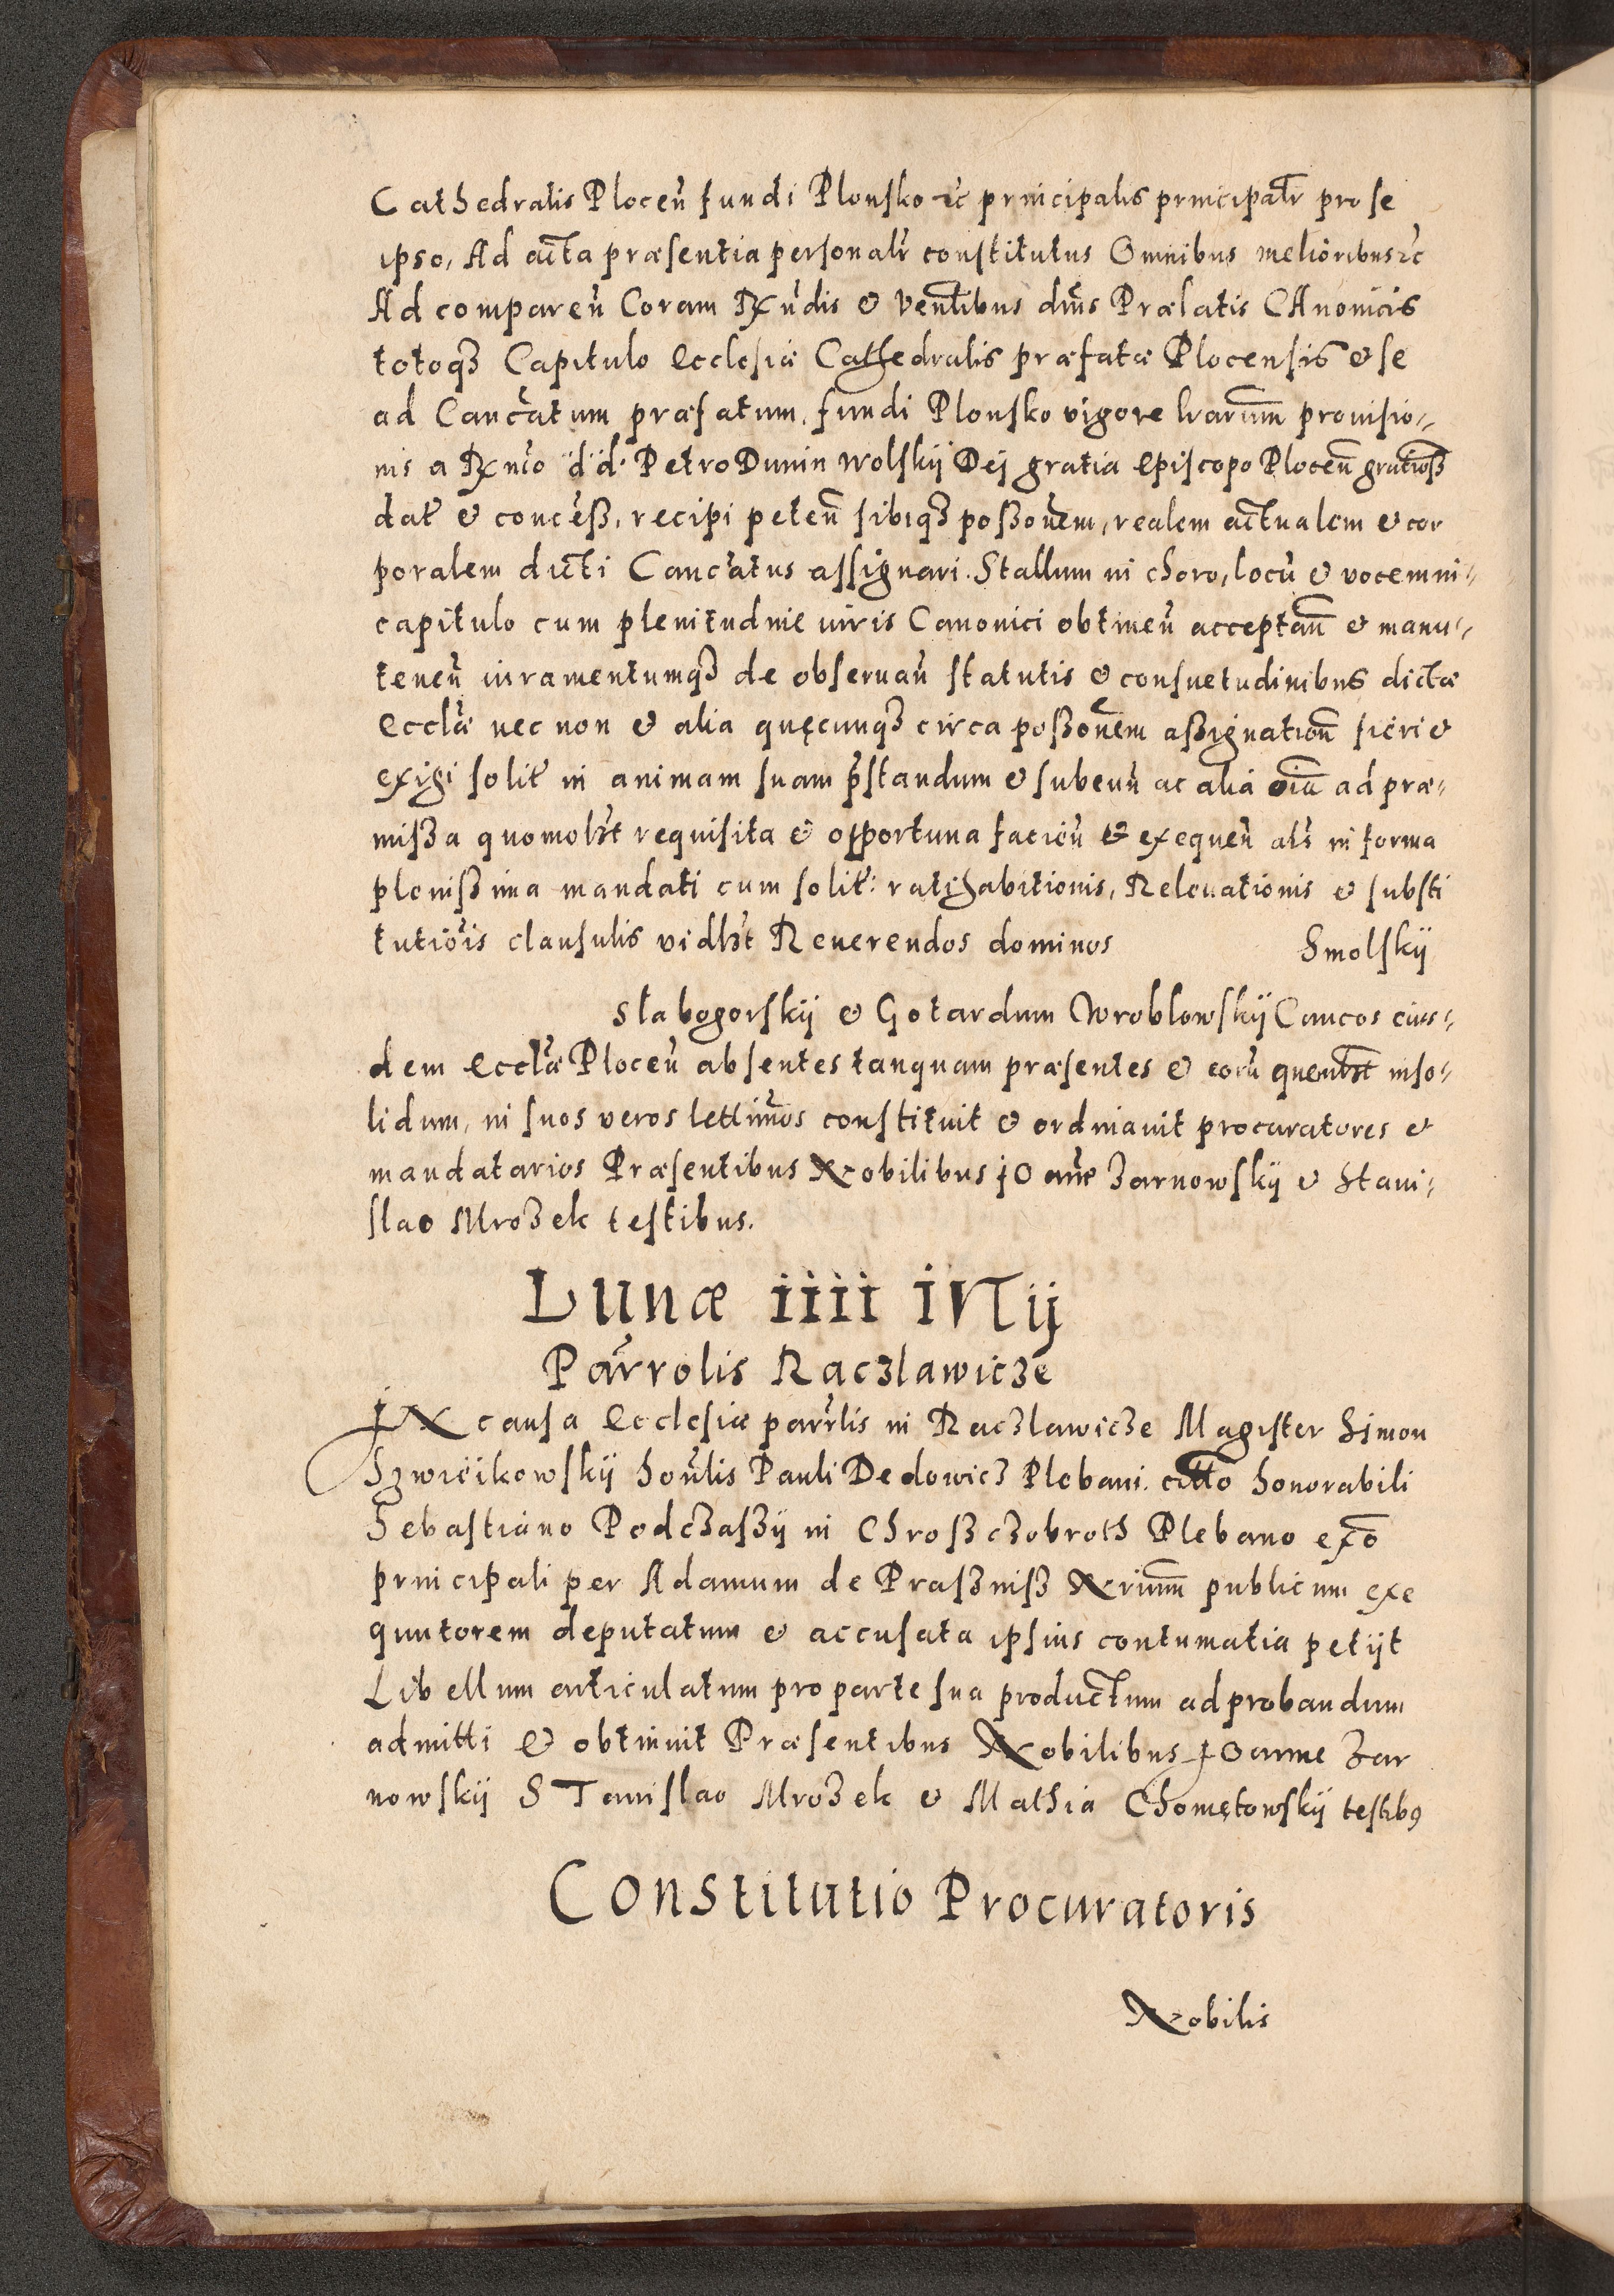 Cathedralis Plocen̄ fundi Plonsko ɛc̃ principalis principalr̃ pro se
ipso, Ad acta præsentia personalr̃ constitutus Omnibus melioribus ɛc̃
Ad comparen̄ Coram Rx̃ndis & Ven̄libus dnis Prælatis CAnonicis
totoqʒ Capitulo Ecclesiæ Cathedralis præfatæ Plocensis & se
ad Canc̃atum præfatum, fundi Plonsko vigore lrarum prouisio-
nis a Rx̃mo d. d. Petro Dunin Wolskij Dej gratia Episcopo Plocen̄ gratioß
dat̃ & conceß, recipi peten̄ sibiqʒ poßonem, realem actualem & cor
poralem dicti Canc̃atus assignari. Stallum in choro, locū & vocem in-
capitulo cum plenitudine iuris Canonici obtinen̄ acceptan̄ & manu-
tenen̄ iuramentumqʒ de obseruan̄ statutis & consuetudinibus dictæ
Ecclæ nec non & alia quęcunqʒ circa poßonem aßignation̄ fieri &
exigi solit̃ in animam suam p̃standum & subeun̄ ac alia oīa ad præ-
mißa quomolʒt requisita & opportuna facien̄ & exequen̄ als̃ in forma
plenißima mandati cum solit̃: ratihabitionis, Releuationis & substi
tutiois clausulis vidlʒt Reuerendos dominos Smolskij
Slabogorskij & Gotardum Wroblowskij Cancos eius-
dem Ecclæ Plocen̄ absentes tanquam præsentes & eorū quemlʒt inso-
lidum, in suos veros lettimos constituit & ordinauit procuratores &
mandatarios Præsentibus Nobilibus jOane Zarnowskij & Stani-
slao Mroʒek testibus.
Lunæ iiii iVlij
Parrolis Racʒlawicʒe
jN causa Ecclesiæ parrlis in Racʒlawicʒe Magister Simon
Sʒwicikowskij honlis Pauli Dedowicʒ Plebani. citto honorabili
Sebastiano Podcʒaßʒij in Chroßcʒobroth Plebano exõ
principali per Adamum de Praßniß Nrium publicum exe
quutorem deputatum & accusata ipsius contumatia petijt
Libellum articulatum pro parte sua productum ad probandum
admitti & obtinuit Præsentibus Nobilibus jOanne Zar
nowskij STanislao Mroʒek & Mathia Chomętowskij testibꝯ
Constitutio Procuratoris
Nobilis